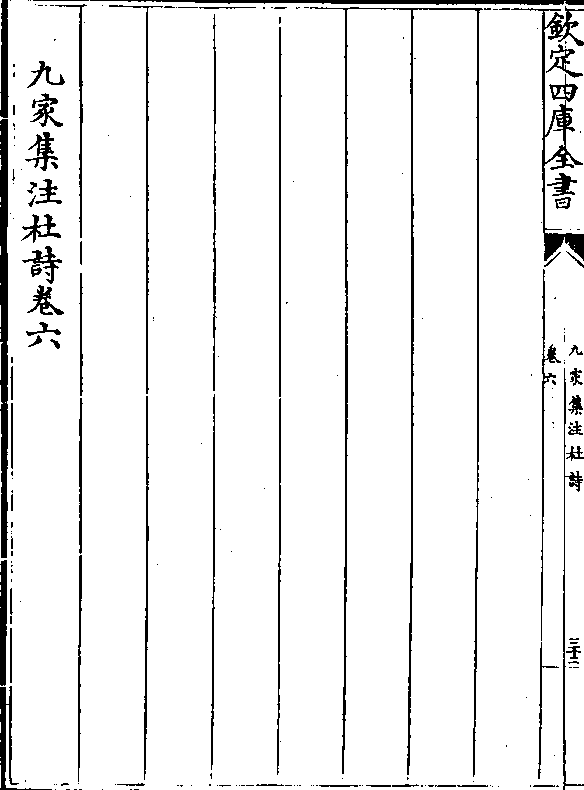 欽定四庫全書
九家集注杜詩
卷六
三十二
九家集注杜詩卷六